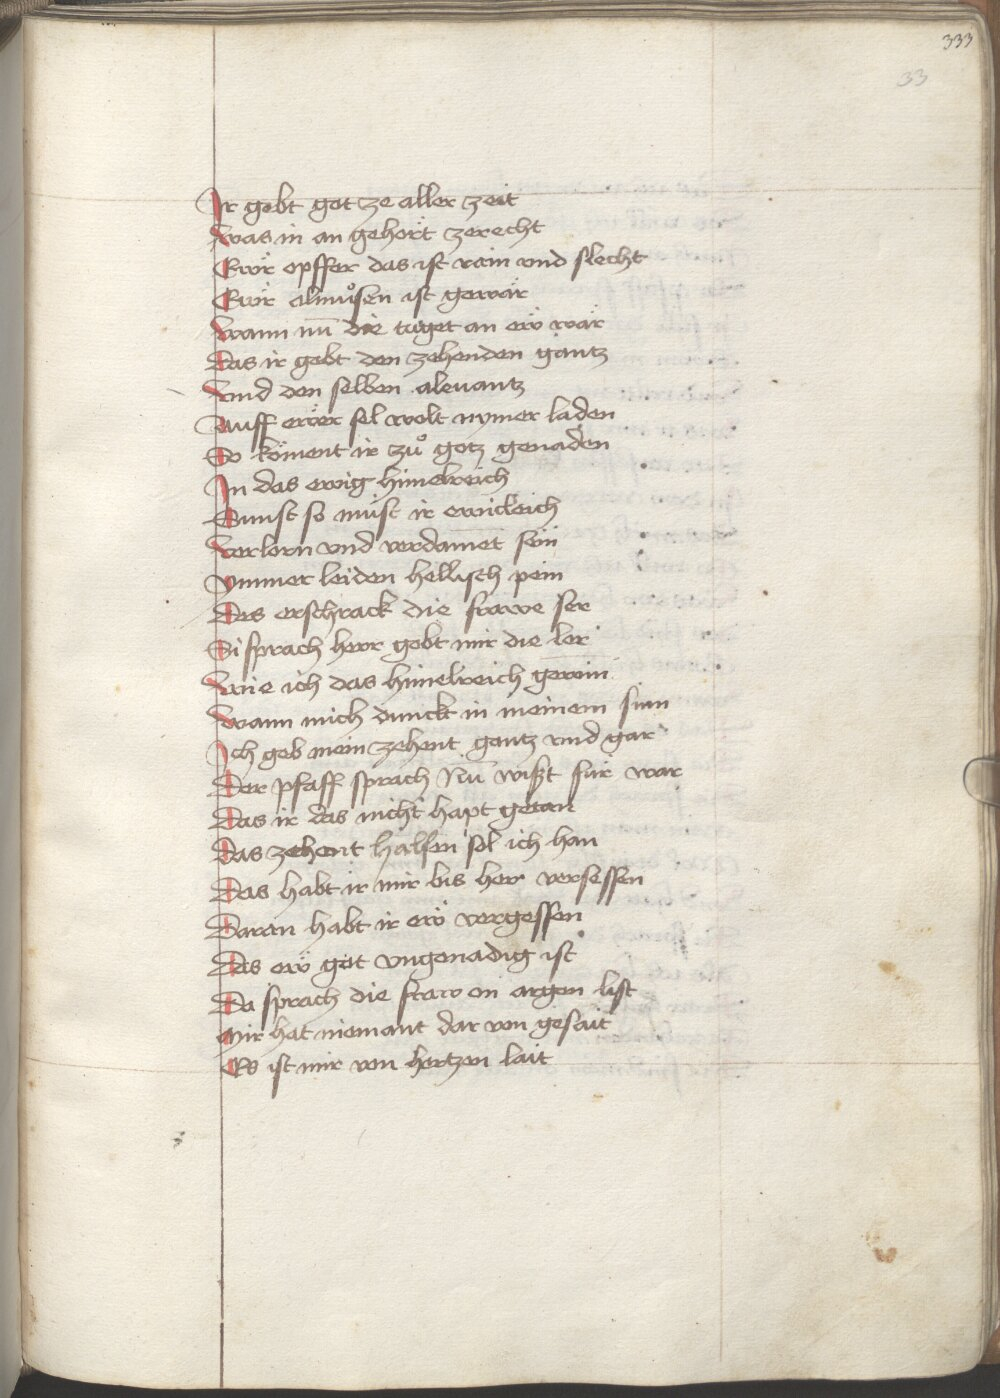 333
33
Ir gebt got ze aller zeit
Was in an gehört zerecht
Ewr opffer das ist rain vnd slecht
Ewr almůsen ist gewär
Wann nū die tuget an ew wär
Das ir gebt den zehenden gantz
Vnd den selben alevantz
Auff ewer sel wolt nymer laden
So köment ir zů gotz genaden
In das ewig himelreich
Sunst so müst ir ewicleich
Verlorn vnd verdamet sein
Ymmer leiden hellisch pein
Des erschrack die frawe ser
Si sprach herr gebt mir die ler
Wie ich das himelreich gewin
Wann mich dunckt in meinem sinn
Ich geb mein zehent gantz vnd gar
Der pfaff sprach Nū wißt für war
Das ir das nicht hapt getan
Das zehent halsen sol ich han
Das habt ir mir bis her versessen
Daran habt ir ew vergessen
Das ew got vngenadig ist
Da sprach die fraw on argen list
Mir hat niemant dar von gesait
Es ist mir von hertzen lait